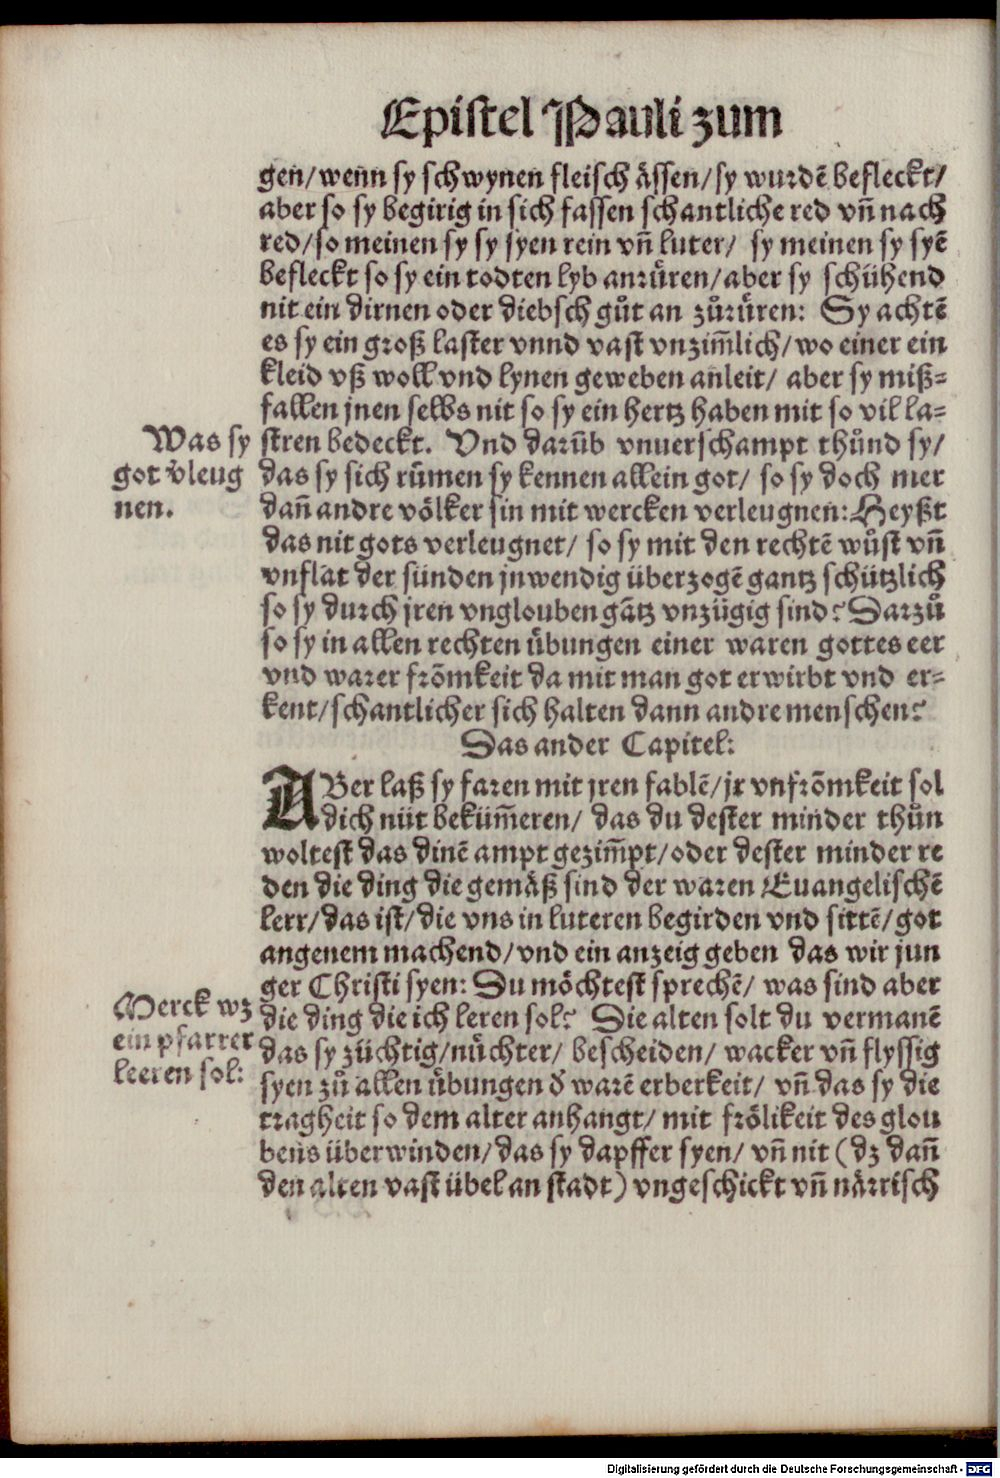 Epistel Pauli zum
gen/wenn sy schwynen fleisch ässen/sy wurdē befleckt/
aber so sy begirig in sich fassen schantliche red vñ nach
red/so meinen sy sy syen rein vñ luter/ sy meinen sy syē
befleckt so sy ein todten lyb anrüren/aber sy schühend
nit ein dirnen oder diebsch gůt an zůrüren: Sy achtē
es sy ein groß laster vnnd vast vnzim̃lich/wo einer ein
kleid vß woll vnd lynen geweben anleit/ aber sy miß=
fallen jnen selbs nit so sy ein hertz haben mit so vil la=
Was sy
got v̄leug
nen.
stren bedeckt. Vnd darūb vnuerschampt thůnd sy/
das sy sich rümen sy kennen allein got/ so sy doch mer
dañ andre völker sin mit wercken verleugnen: Heyßt
das nit gots verleugnet/ so sy mit den rechtē wůst vñ
vnflat der sünden jnwendig überzogē gantz schützlich
so sy durch jren vnglouben gātz vnzügig sind? Darzů
so sy in allen rechten übungen einer waren gottes eer
vnd warer frōmkeit da mit man got erwirbt vnd er=
kent/schantlicher sich halten dann andre menschen?
Das ander Capitel:
ABer laß sy faren mit jren fablē/jr vnfrōmkeit sol
dich nüt beküm̃eren/ das du dester minder thůn
woltest das dinē ampt gezim̃pt/oder dester minder re
den die ding die gemäß sind der waren Euangelischē
lerr/das ist/die vns in luteren begirden vnd sittē/got
angenem machend/vnd ein anzeig geben das wir jun
ger Christi syen: Du möchtest sprechē/ was sind aber
Merck wz
ein pfarrer
leeren sol:
die ding die ich leren sol? Die alten solt du vermanē
das sy züchtig/nüchter/ bescheiden/ wacker vñ flyssig
syen zů allen übungen d̄ warē erberkeit/ vñ das sy die
tragheit so dem alter anhangt/ mit frölikeit des glou
bens überwinden/das sy dapffer syen/ vñ nit (dz dañ
den alten vast übel an stadt) vngeschickt vñ närrisch
Digitalisierung gefördert durch die Deutsche Forschungsgemeinschaft - DFG